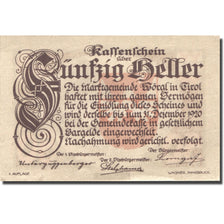 Kassenschein
über
Fünfzig Heller
Die Marktgemeinde Wörgl in Tirol
haftet mit ihrem ganzen Vermögen
für die Einlösung dieses Scheines und
wird derselbe bis zum 31. Dezember 1920
bei der Gemeindekasse in gesetzliches
Bargeld eingewechselt.
Nachmachung wird gerichtl. verfolgt.
Der 1. Bürgermeister:
Unterguggenberger
1. AUFLAGE
WAGNER, INNSBRUCK